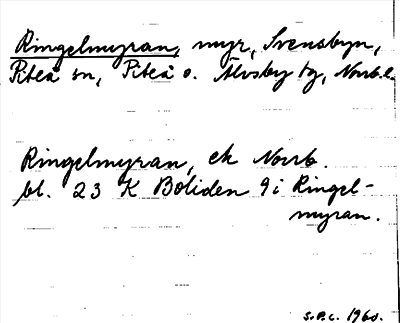 Ringelmyran, myr, Svensbyn,
Piteå sn, Piteå o. Älvsby tg, Norrb.l.
Ringelmyran, ek Norrb.
bl. 23 K Boliden 9 i Ringel-
myran.
S.P.C. 1960.